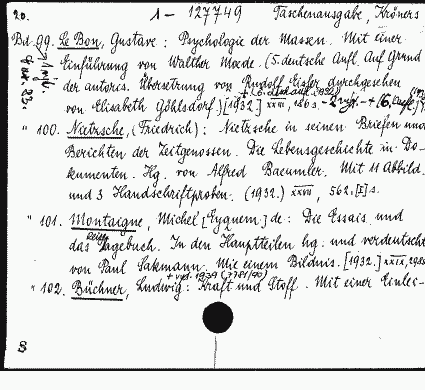 20. 1-127749 Taschenausgabe, Kröners
Bd. 99. Le Bon, Gustave: Psychologie der Massen. Mit einer
Einführung von Walther Moede. (5. deutsche Aufl. Auf Grund
der autoris. Übersetzung von Rudolf Eisler durchgesehen
von Elisabeth Göhlsdorf.) [1932.] XXXI, 186 S.
" 100. Nietzsche, (Friedrich): Nietzsche in seinen Briefen und
Berichten der Zeitgenossen. Die Lebensgeschichte in Do-
kumenten. Hg. von Alfred Baeumler. Mit 11 Abbild.
und 3 Handschriftproben. (1932.) XXVII, 562, [I] S.
" 101. Montaigne, Michel [Eyquem] de: Die Essais und
das Reise
Tagebuch. In den Hauptteilen hg. und verdeutscht
von Paul Sakmann. Mit einem Bildnis. [1932.] XXIX,
" 102. Büchner, Ludwig: Kraft und Stoff. Mit einer Einlei-